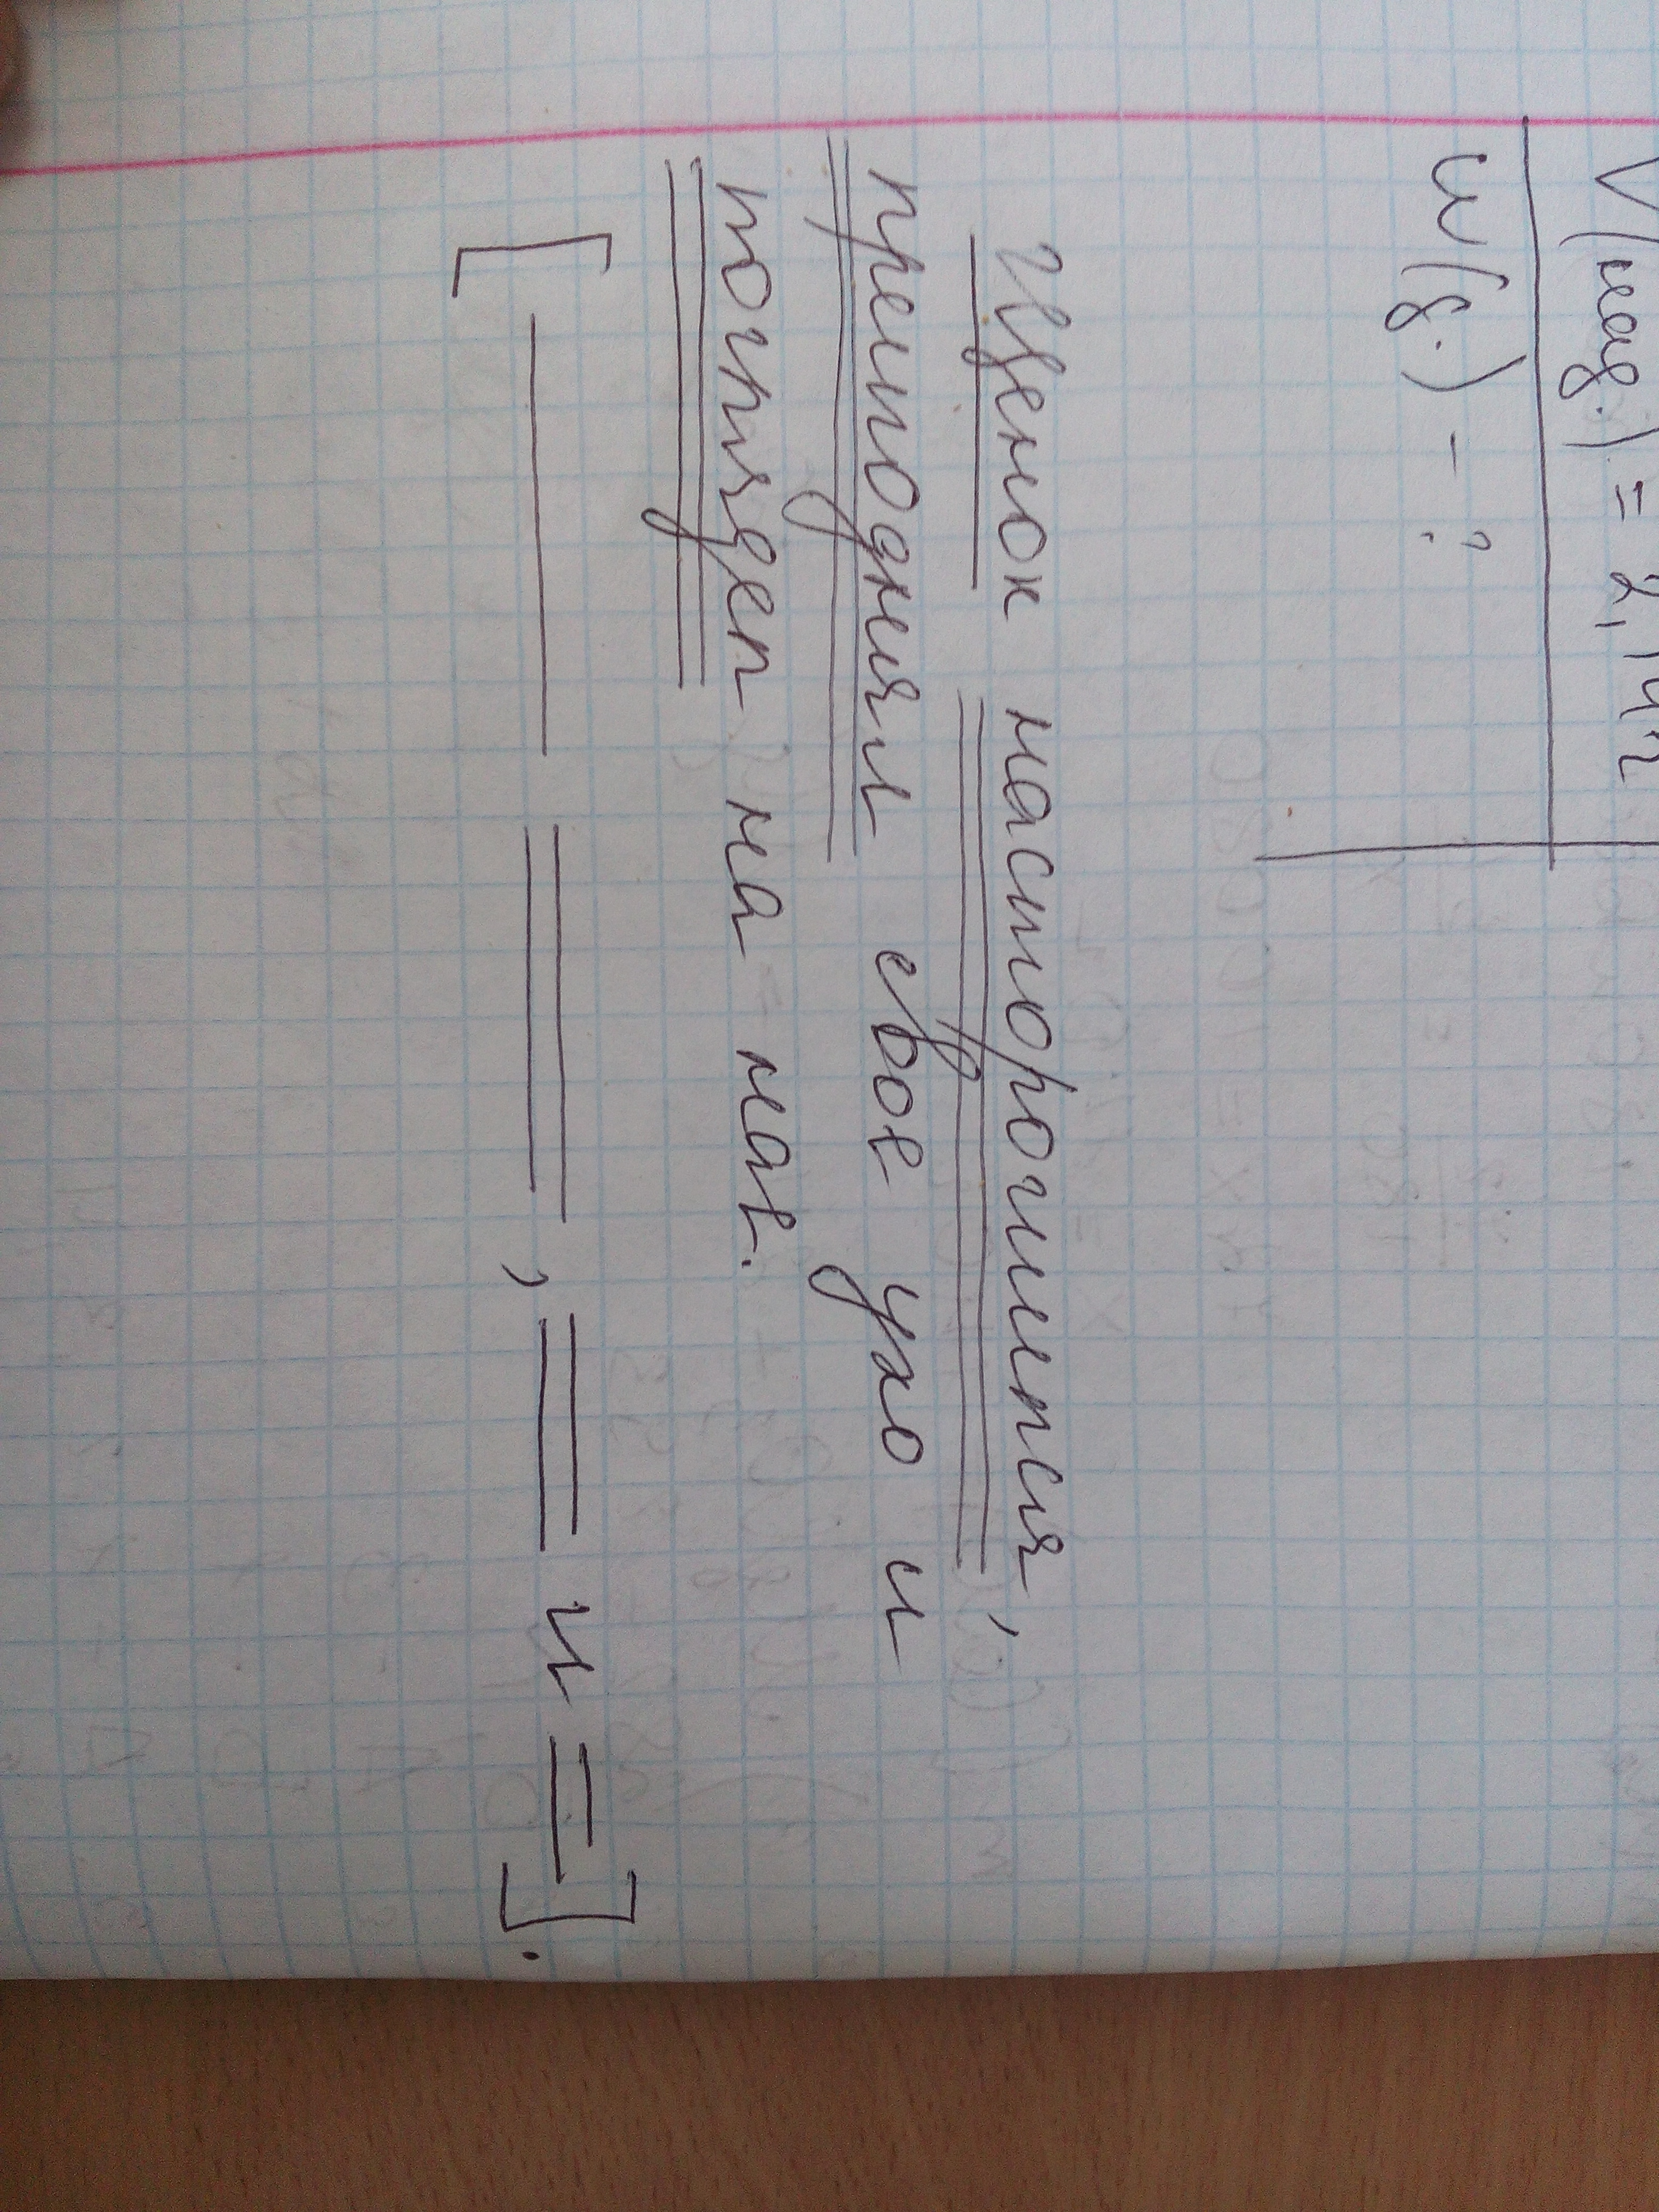 V(кад.) = 2,14л
w(в.) - ?
Щенок насторожился,
приподнял своё ухо и
поглядел на нас.
[— =, = и =].